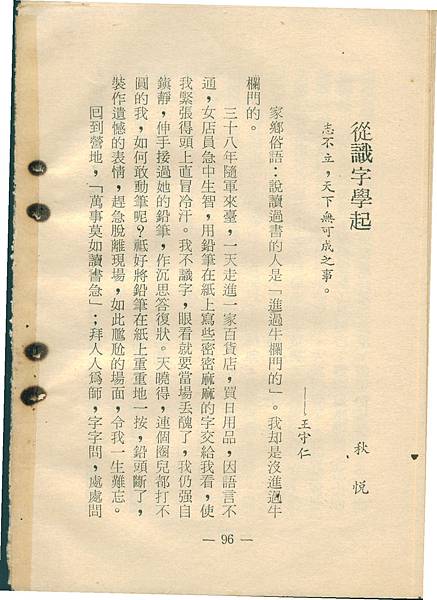 從識字學起
秋悅
志不立，天下無可成之事。
——王守仁
家鄉俗語：說讀過書的人是「進過牛欄門的」。我却是沒進過牛
欄門的。
三十八年隨軍來臺，一天走進一家百貨店，買日用品，因語言不
通，女店員急中生智，用鉛筆在紙上寫些密密麻麻的字交給我看，使
我緊張得頭上直冒冷汗。我不識字，眼看就要當場丟醜了，我仍强自
鎮靜，伸手接過她的鉛筆，作沉思答復狀。天曉得，連個圈兒都打不
圓的我，如何敢動筆呢？祇好將鉛筆在紙上重重地一按，鉛頭斷了，
裝作遺憾的表情，趕急脫離現場，如此尷尬的場面，令我一生難忘。
回到營地，「萬事莫如讀書急」；拜人人爲師，字字問，處處問
— 96 —